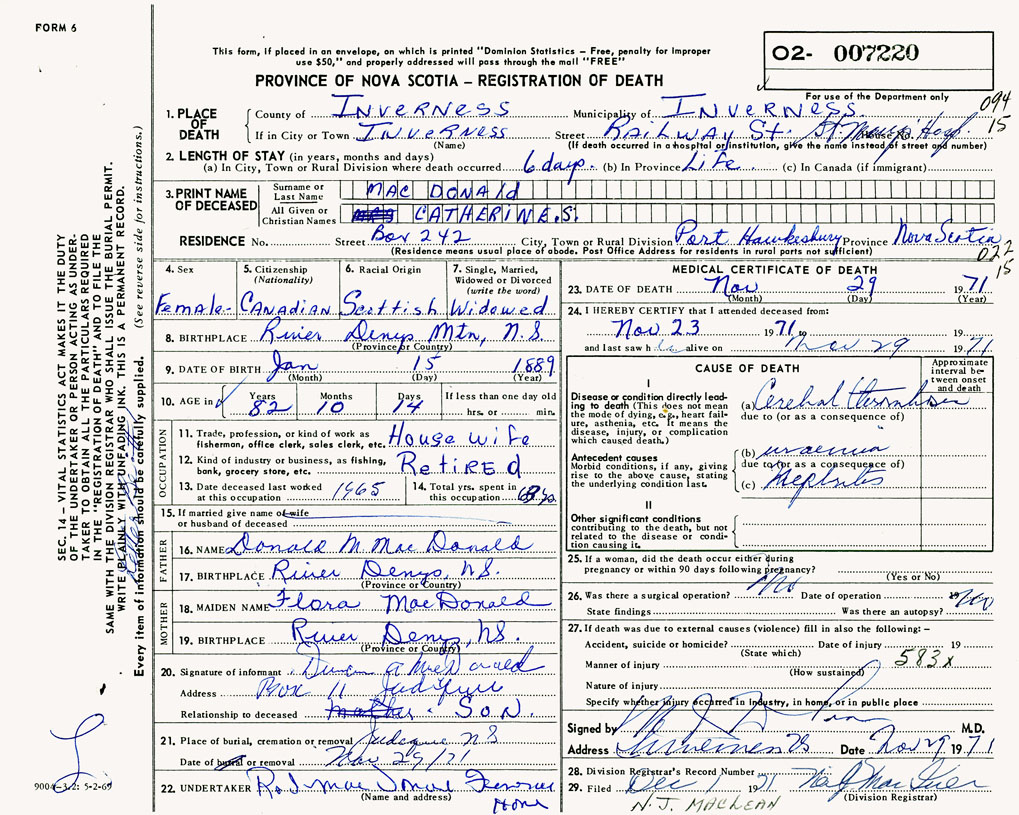 FORM 6
This form, if placed in an envelope, on which is printed "Dominion Statistics – Free, penalty for improper
use $50," and properly addressed will pass through the mail "FREE"
O2- 007220
For use of the Department only
PROVINCE OF NOVA SCOTIA – REGISTRATION OF DEATH
094
15
1. PLACE OF DEATH
County of INVERNESS Municipality of INVERNESS
If in City or Town INVERNESS Street RAILWAY St.
(Name) (If death occurred in a hospital or institution, give the name instead of street and number)
2. LENGTH OF STAY (in years, months and days)
(a) In City, Town or Rural Division where death occurred 6 days. (b) In Province Life (c) In Canada (if immigrant)
3. PRINT NAME OF DECEASED
Surname or Last Name MAC DONALd
All Given or Christian Names CATHERINE.S.
RESIDENCE No. Street Box 242 City, Town or Rural Division Port Hawkesbury Province Nova Scotia
(Residence means usual place of abode. Post Office Address for residents in rural parts not sufficient)
022
15
4. Sex
Female-
5. Citizenship
(Nationality)
CANAdiAN
6. Racial Origin
Scottish
7. Single, Married,
Widowed or Divorced
(write the word)
Widowed
8. BIRTHPLACE River Denys Mtn, N.S.
(Province or Country)
9. DATE OF BIRTH Jan 15 1889
(Month) (Day) (Year)
10. AGE in
Years Months Days If less than one day old
82 10 14 hrs. or min.
OCCUPATION
11. Trade, profession, or kind of work as
fisherman, office clerk, sales clerk, etc. House wife
12. Kind of industry or business, as fishing,
bank, grocery store, etc. REtiREd
13. Date deceased last worked
at this occupation 1965
14. Total yrs. spent in
this occupation
15. If married give name of wife
or husband of deceased
FATHER
16. NAME Donald M Mac Donald
17. BIRTHPLACE River Denys, NS.
(Province or Country)
MOTHER
18. MAIDEN NAME Flora MacDonald
19. BIRTHPLACE River Denys, NS.
(Province or Country)
20. Signature of informant
Address Box 11 Judique
Relationship to deceased SON.
21. Place of burial, cremation or removal Judique NS
Date of burial or removal Nov 29/71
22. UNDERTAKER R. J. Mac Donald Funeral
Home
(Name and address)
MEDICAL CERTIFICATE OF DEATH
23. DATE OF DEATH Nov 29 1971
(Month) (Day) (Year)
24. I HEREBY CERTIFY that I attended deceased from:
Nov 23 1971 to 19
and last saw h alive on Nov 29 1971
CAUSE OF DEATH
Approximate
interval be-
tween onset
and death
I
Disease or condition directly lead-
ing to death (This does not mean
the mode of dying, e.g., heart fail-
ure, asthenia, etc. It means the
disease, injury, or complication
which caused death.)
(a) Cerebral
due to (or as a consequence of)
Antecedent causes
Morbid conditions, if any, giving
rise to the above cause, stating
the underlying condition last.
(b) uraemia
due to (or as a consequence of)
(c) Nephritis
II
Other significant conditions
contributing to the death, but not
related to the disease or condi-
tion causing it.
25. If a woman, did the death occur either during
pregnancy or within 90 days following pregnancy? No
(Yes or No)
26. Was there a surgical operation? Date of operation 19
State findings Was there an autopsy? No
27. If death was due to external causes (violence) fill in also the following: –
Accident, suicide or homicide? Date of injury 19
(State which)
583x
Manner of injury
(How sustained)
Nature of injury
Specify whether injury occurred in Industry, in home, or in public place
Signed by M.D.
Address Inverness NS Date Nov 29 1971
28. Division Registrar's Record Number
29. Filed Dec 1 1971
(Division Registrar)
N.J. MACLEAN
SEC. 14 – VITAL STATISTICS ACT MAKES IT THE DUTY
OF THE UNDERTAKER OR PERSON ACTING AS UNDER-
TAKER TO OBTAIN ALL THE PARTICULARS REQUIRED
IN THE "REGISTRATION OF DEATH" AND TO FILE THE
SAME WITH THE DIVISION REGISTRAR WHO SHALL ISSUE THE BURIAL PERMIT.
WRITE PLAINLY WITH UNFADING INK. THIS IS A PERMANENT RECORD.
Every item of information should be carefully supplied. (See reverse side for instructions.)
9004-3.2: 5-2-69